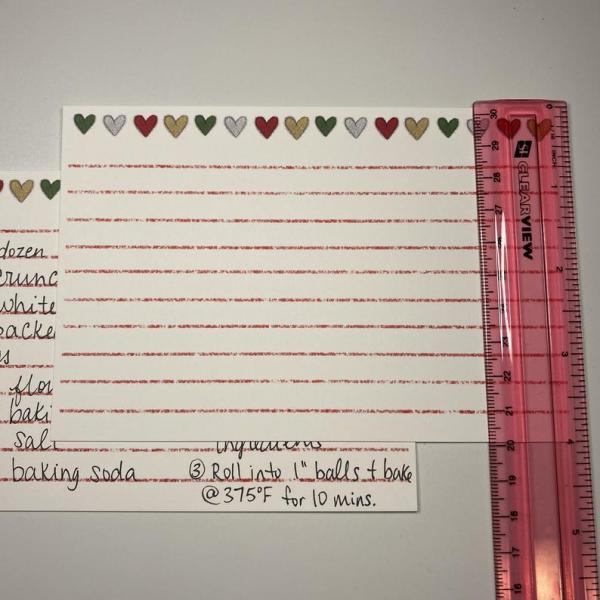 dozen
crunc
white
packe
s
flou
baki
salt
baking soda
ingredients
③ Roll into 1" balls + bake
@ 375°F for 10 mins.
CLEARVIEW
30
29
28
27
23
22
21
20
19
18
17
16
0
1
2
3
4
5